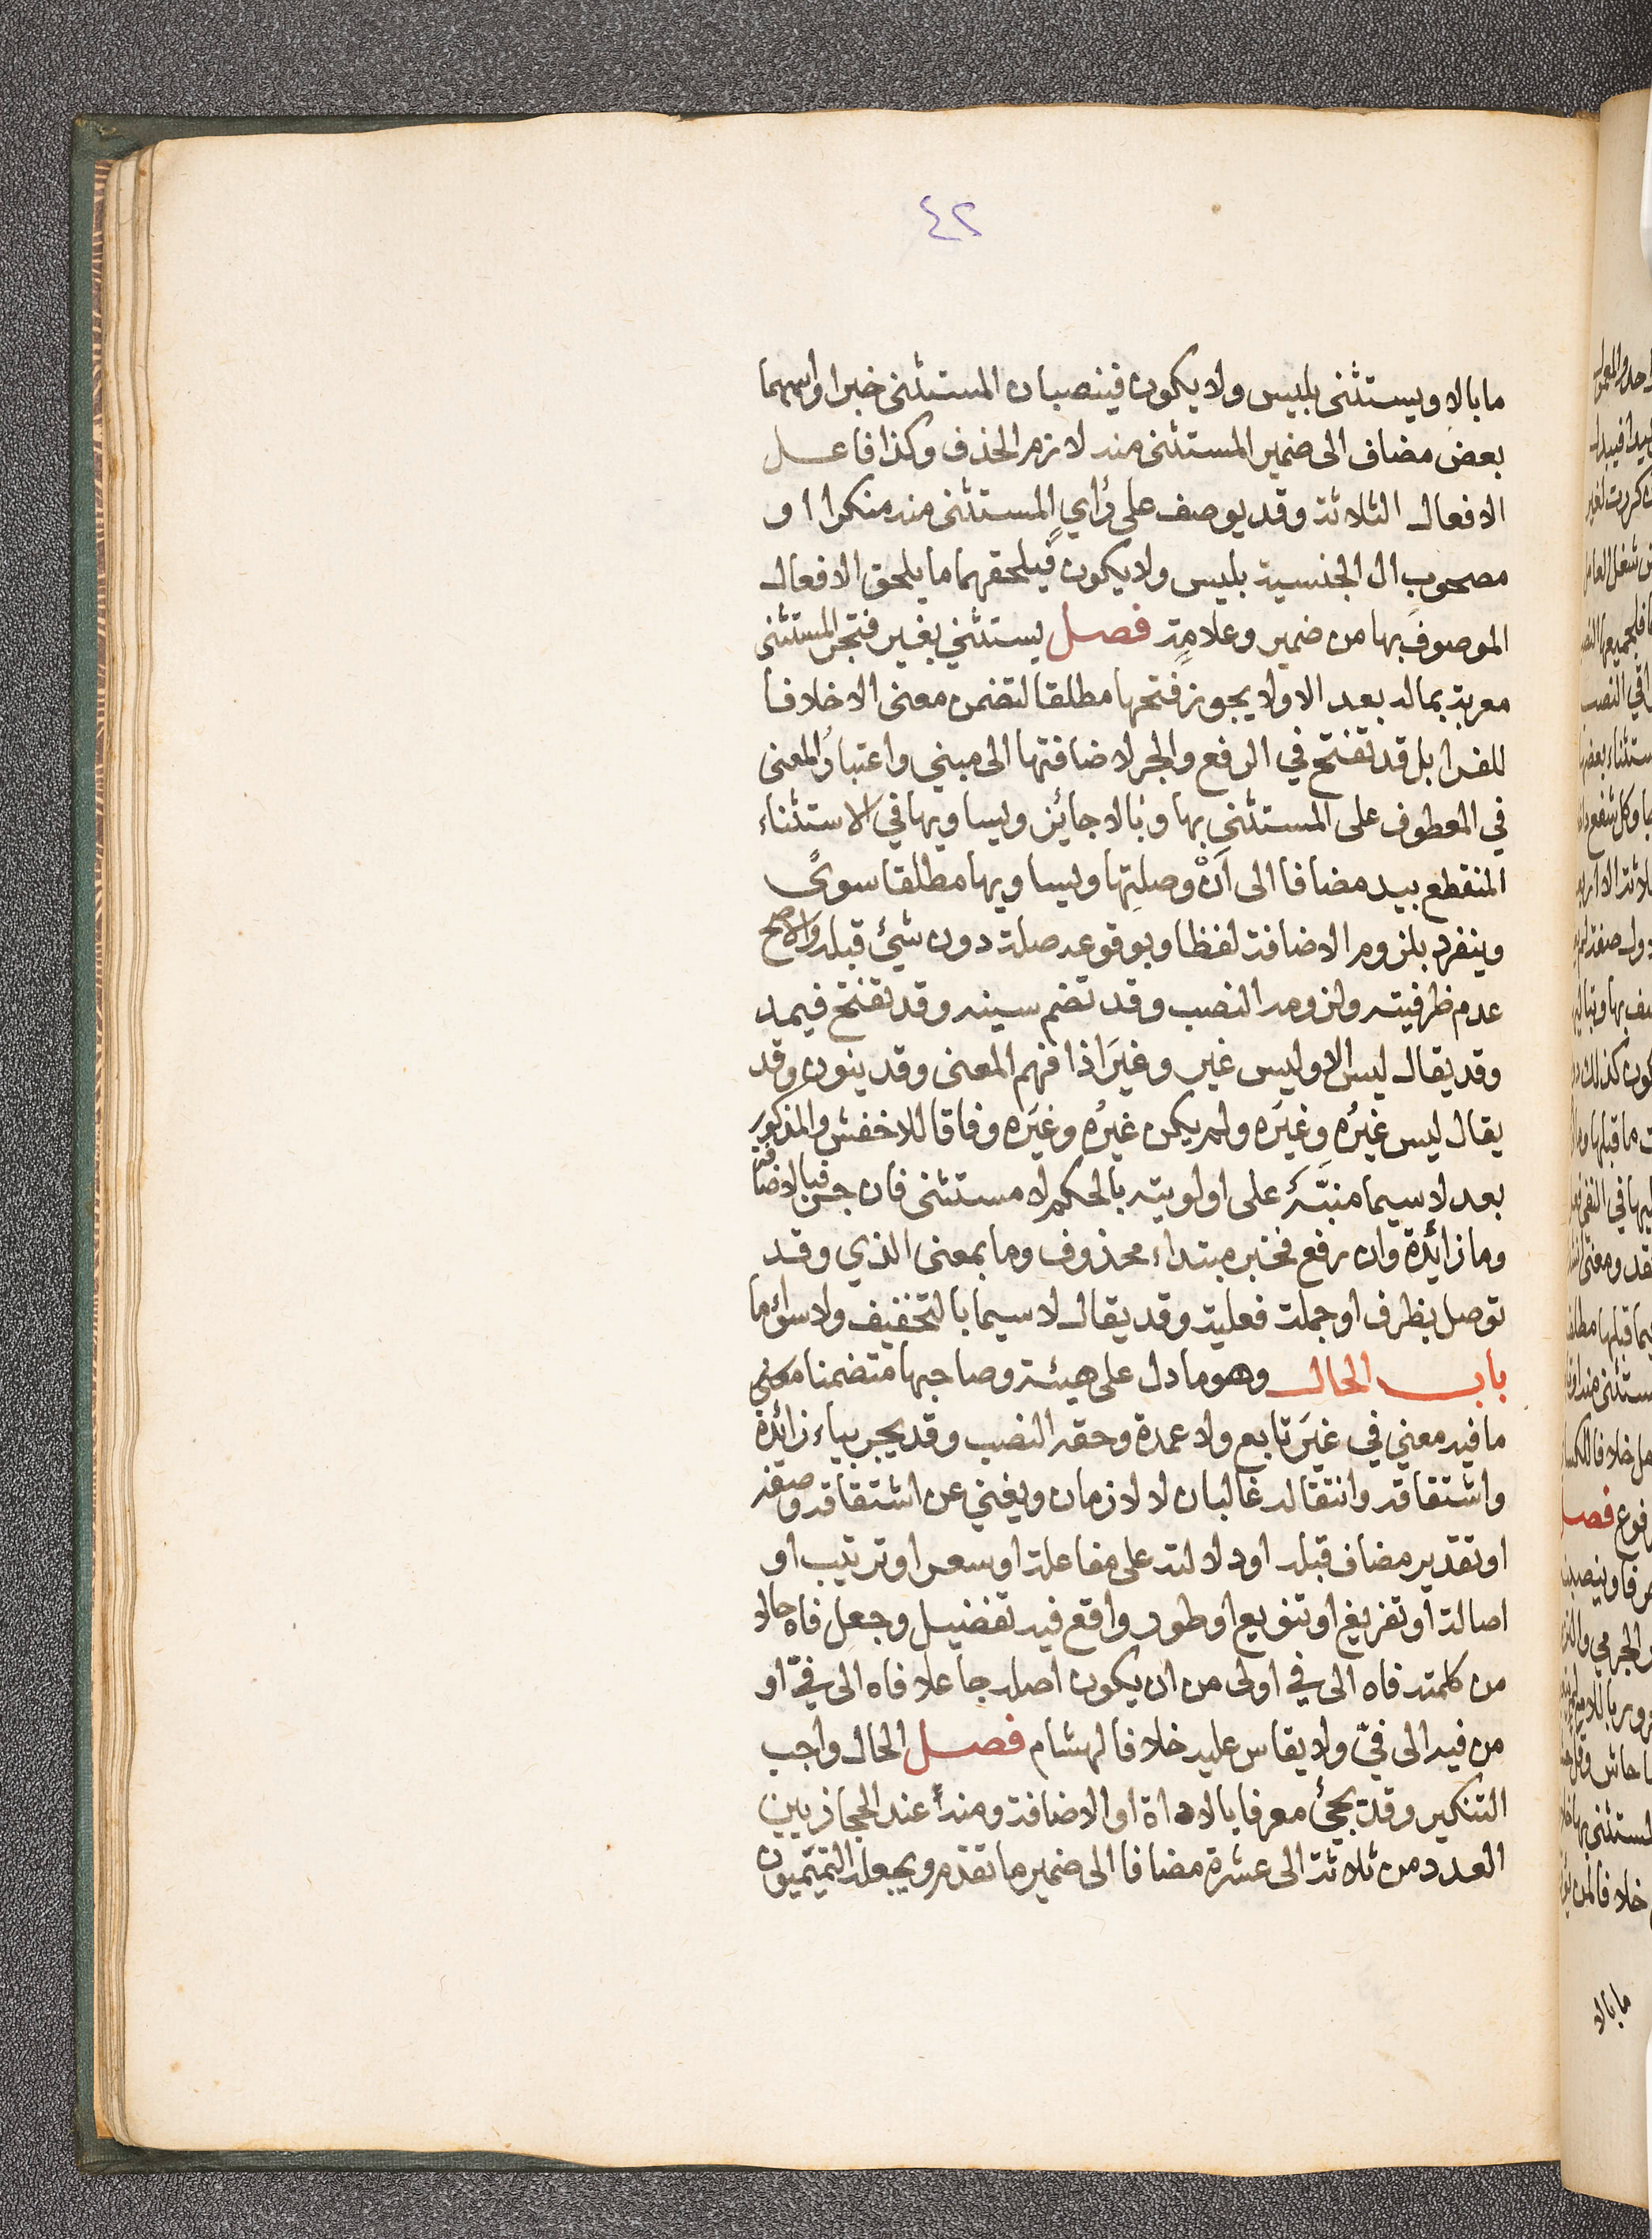 ٤٢
ما بالا ويستثنى بليس ولا يكون فينصبان المستثنى خبرا واسمهما
بعض مضاف الى ضمير المستثنى منه لازم الحذف وكذا فاعل
الافعال الثلاثة وقد يوصف على رأي المستثنى منه منكرا او
مصحوب ال الجنسية بليس ولا يكون فيلحقهما ما يلحق الافعال
الموصوف بها من ضمير وعلامة فصل يستثنى بغير فتجر المستثنى
معربة بما له بعد الا ولا يجوز فتحها مطلقا لتضمن معنى الا خلافا
للفرا بل قد تفتح في الرفع والجر لاضافتها الى مبني واعتبار المعنى
في المعطوف على المستثنى بها وبالا جائز ويساويها في الاستثناء
المنقطع بيد مضافا الى أنّ وصلتها ويساويها مطلقا سوى
وينفرد بلزوم الاضافة لفظا وبوقوعه صلة دون شيئ قبله والاصح
عدم ظرفيته ولزومه النصب وقد تضم سينه وقد تفتح فيمد
وقد يقال ليس الا وليس غير وغيرَ اذا فهم المعنى وقد ينون وقد
يقال ليس غيرُه وغيرَه ولم يكن غيرُه وغيرَه وفاقا للاخفش والمذكور
بعد لا سيما منبَّهٌ على اولويته بالحكم لا مستثنى فان جر فبالاضافة
وما زائدة وان رفع فخبر مبتداء محذوف وما بمعنى الذي وقد
توصل بظرف او جملة فعلية وقد يقال لا سيما بالتخفيف ولا سوأما
باب الحال وهو ما دل على هيئة وصاحبها متضمنا معنى
ما فيه معنى في غيرَ تابع ولا عمدة وحقه النصب وقد يجر بباء زائدة
واشتقاقه وانتقاله غالبان لا لازمان ويغني عن اشتقاقه وصفه
او تقدير مضاف قبله او دلالته على مفاعلة او سعر او ترتيب او
اصالة او تفريغ او تنويع او طور واقع فيه تفضيل وجعل فاه حالا
من كلمته فاه الى في اولى من ان يكون اصله جاعلا فاه الى فيّ او
من فيه الى فيّ ولا يقاس عليه خلافا لهشام فصل الحال واجب
التنكير وقد يجئ معرفا بالاداة او الاضافة ومنه عند الحجازيين
العدد من ثلاثة الى عشرة مضافا الى ضمير ما تقدم ويجعله التميميون
ما بالا